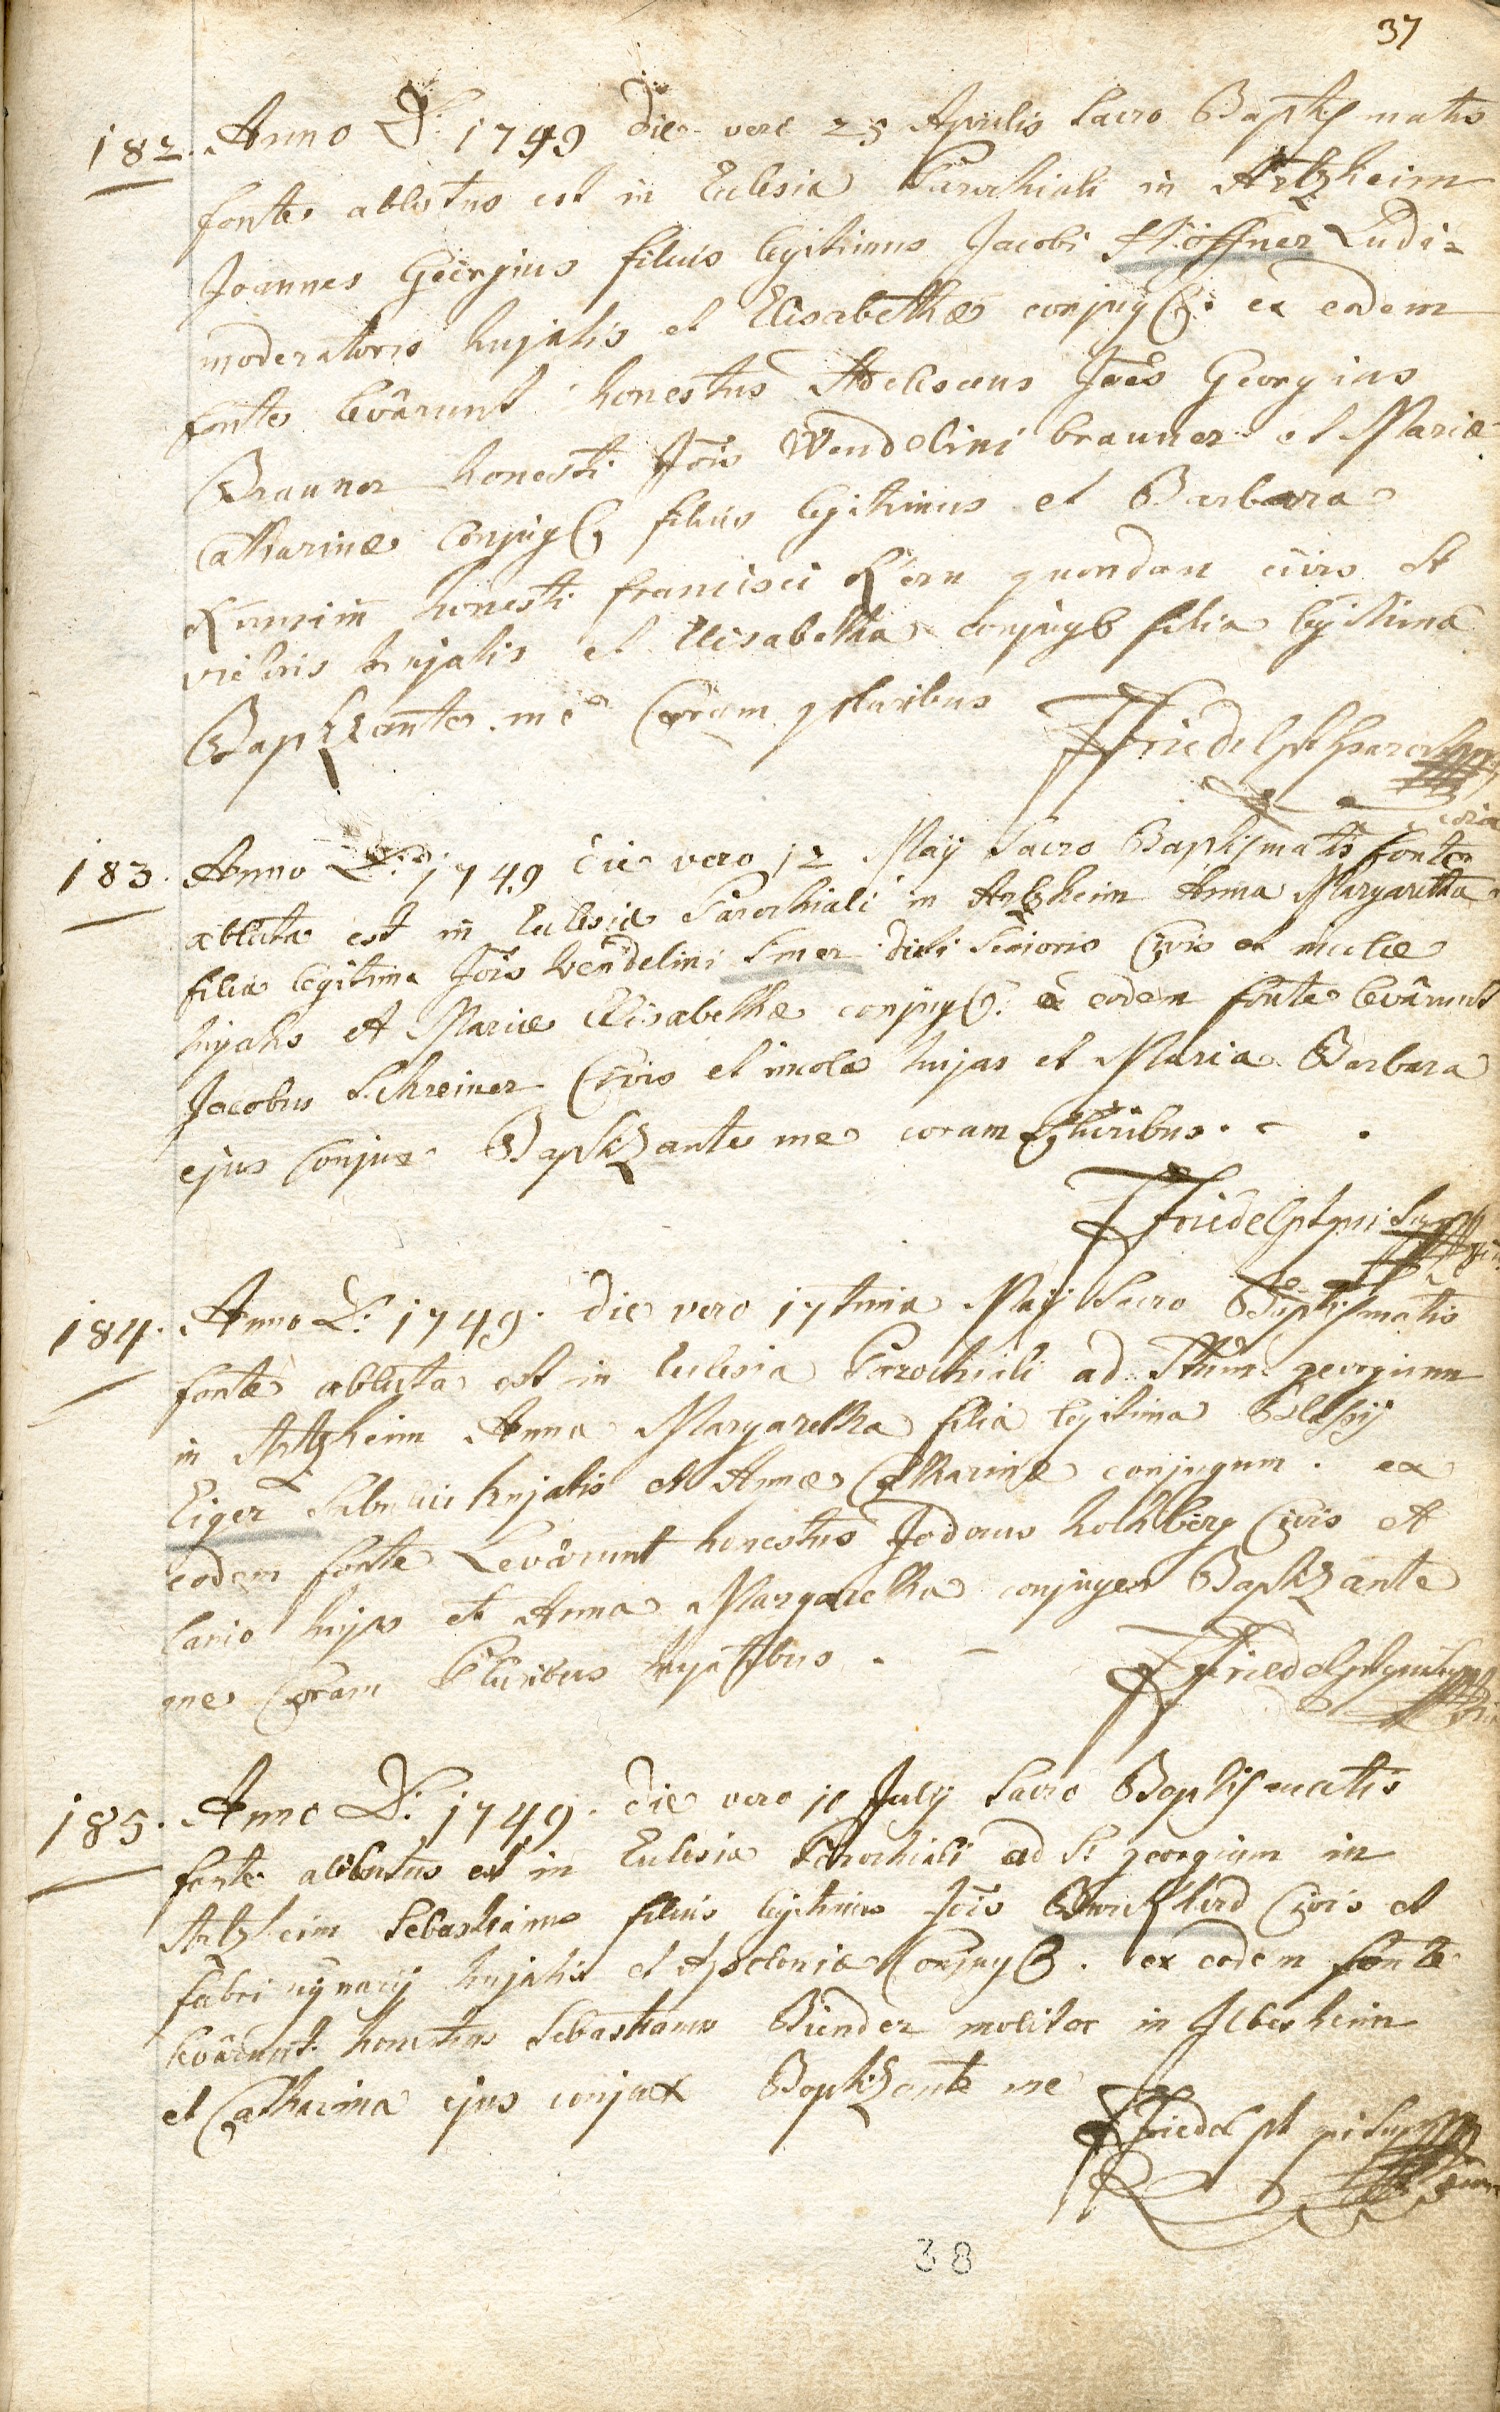 37
182. Anno D: 1749 die vero 25 Aprilis Sacro Baptismatis
fonte ablutus est in Eclesia Parochiali in Artzheim
Joannes Geörgius filius legitimus Jacobi Höffner Ludi=
moderatoris hujatis et Elisabethæ conjug: ex eodem
fonte levârunt honestus Adolescens Joês Georgius
Brauner honesti Jôis Wendelini brauner et Mariæ
Catharinæ conjug filius legitimus et Barbara
honesti francisci Kern quondam civis et
hujatis et Elisabetha conjug filia legitima
Baptizante me Coram pluribus
Friedel
183. Anno D: 1749 die vero 12 Maÿ Sacro Baptismatis fonte
abluta est in Eclesia Parochiali in Artzheim Anna Margaretha
filia legitima Jôis Wendelini Smer dicti Senioris Civis et incolæ
hujatis et Mariæ Elisabethæ conjug: e eodem fonte levârunt
Jacobus Schreiner Civis et incolæ hujas et Maria Barbara
ejus Conjux Baptizante me coram pluribus.
Friedel
184. Anno D: 1749. die vero 17tima Maÿ Sacro Baptismatis
fonte abluta est in Eclesia Parochiali ad georgium
in Artzheim Anna Margaretha filia legitima Blasÿ
Eiger hujatis et Annæ Catharinæ conjugum. ex
eodem fonte Levârunt honestus Jodocus holhberg Civis et
lanio hujas et Anna Margaretha conjuges Baptizante
me Coram Pluribus hujatibus.
Friedel
185. Anno D: 1749. die vero 10 Julÿ Sacro Baptismatis
fonte ablutus est in Eclesia Parochiali ad S: georgium in
Artzheim Sebastianus filius legitimus Jôis Civis et
fabri hujatis et Apoloniæ Conjug. ex eodem fonte
levârunt honestus Sebastianus Binder molitor in Ilbesheim
et Catharina ejus conjux Baptizante me
Friedel
38